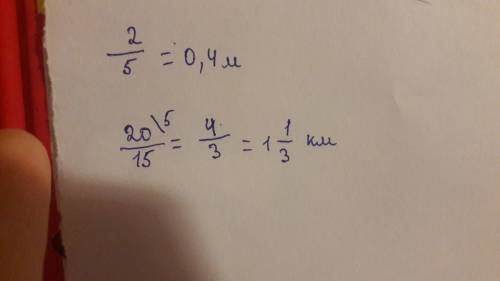 2/5 = 0,4 м
20\5/15 = 4/3 = 1 1/3 км